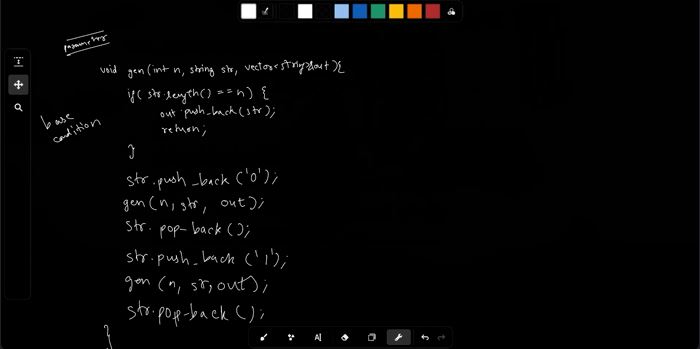 parameter
void gen(int n, string str, vector<string>&out){
if( str.length() == n) {
out.push_back(str);
return;
}
base
condition
str.push_back('0');
gen(n, str, out);
str.pop-back();
str.push_back('1');
gen(n, sr, out);
str.pop-back();
}
AI